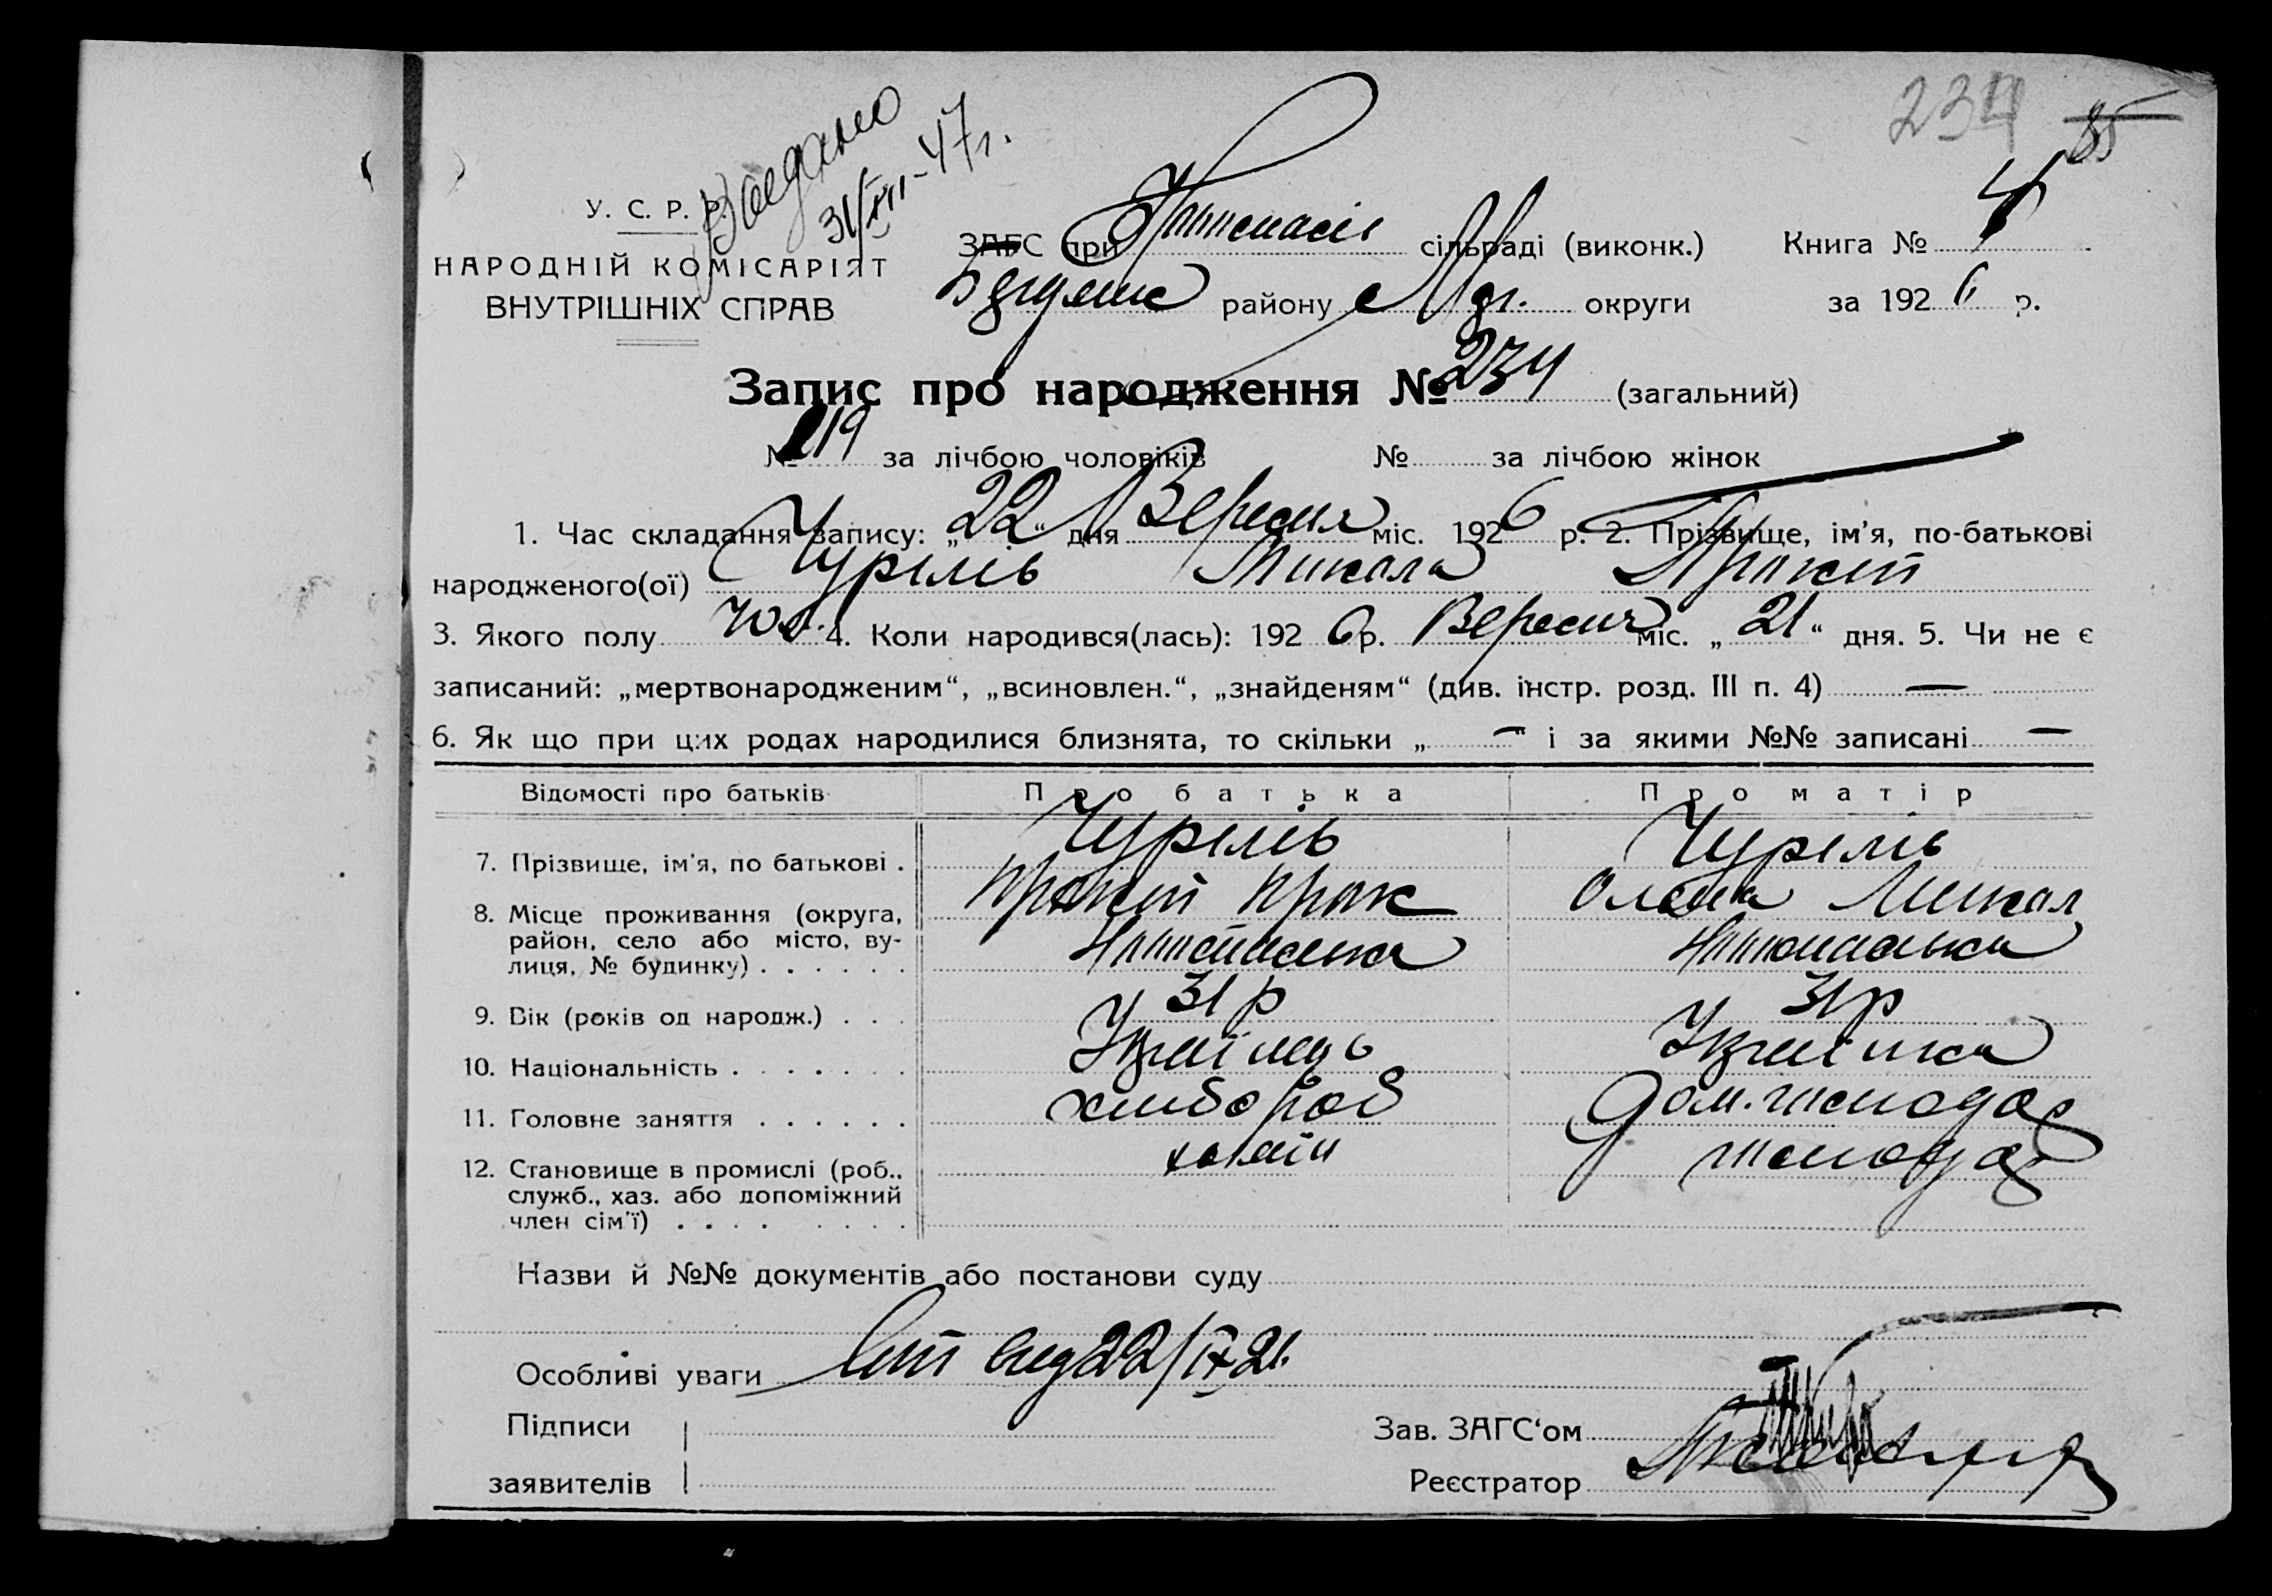 234 85
31/XII-47г.
У. С. Р. Р.
НАРОДНІЙ КОМІСАРІЯТ
ВНУТРІШНІХ СПРАВ
ЗАГС при сільраді (виконк.) Книга № 4
району округи за 1926 р.
Запис про народження № 234 (загальний)
№ 119 за лічбою чоловіків № за лічбою жінок
1. Час складання запису: „22“ дня Вересня міс. 1926 р. 2. Прізвище, ім'я, по-батькові
народженого(ої) Чурілів Микола
3. Якого полу чол. 4. Коли народився(лась): 1926 р. Вересня міс. „21“ дня. 5. Чи не є
записаний: „мертвонародженим“, „всиновлен.“, „знайденям“ (див. інстр. розд. III п. 4) —
6. Як що при цих родах народилися близнята, то скільки „—“ і за якими №№ записані —
Відомості про батьків Про батька Про матір
7. Прізвище, ім'я, по батькові . Чурілів Чурілів
Олена Микол
8. Місце проживання (округа,
район, село або місто, ву-
лиця, № будинку) . . . . . .
9. Вік (років од народж.) . . . 31 р 31 р
10. Національність . . . . . . . Українець Українка
11. Головне заняття . . . . . . хлібороб Дом. господар
12. Становище в промислі (роб., хазяїн господар
служб., хаз. або допоміжний
член сім'ї) . . . . . . . .
Назви й №№ документів або постанови суду
Особливі уваги 22/IX 26.
Підписи
заявителів
Зав. ЗАГС‘ом
Реєстратор